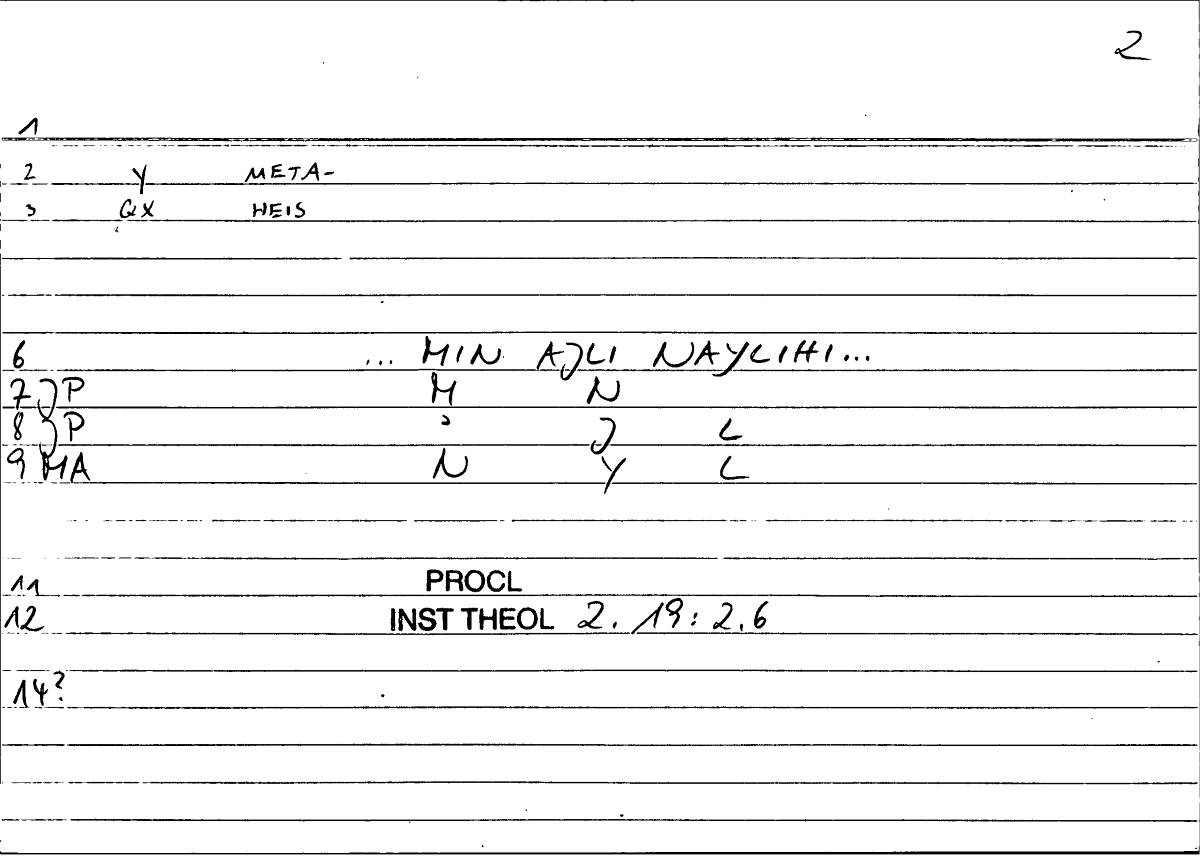 2
1
2 Y META-
3 QX HEIS
6 ... MIN AJLI NAYLIHI...
7 JP M N
8 JP ' J L
9 MA N Y L
11 PROCL
12 INST THEOL 2. 19: 2.6
14?